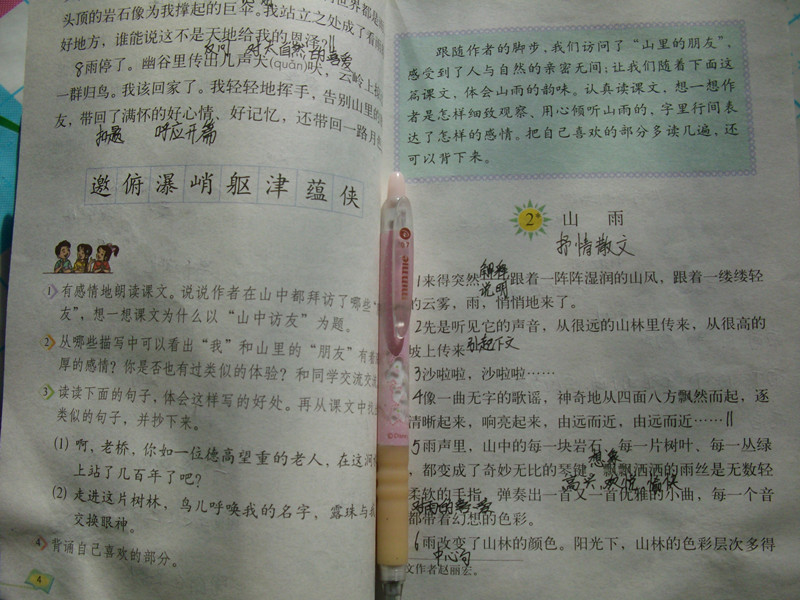 头顶的岩石像为我撑起的巨伞。我站立之处成了看雨
好地方，谁能说这不是天地给我的恩泽？
反问 对大自然的喜爱
8雨停了。幽谷里传出几声犬(quǎn)吠，云岭上掠
一群归鸟。我该回家了。我轻轻地挥手，告别山里的
友，带回了满怀的好心情、好记忆，还带回一路月色
扬题 呼应开篇
邀俯瀑峭躯津蕴侠
1 有感情地朗读课文。说说作者在山中都拜访了哪些“
友”，想一想课文为什么以“山中访友”为题。
2 从哪些描写中可以看出“我”和山里的“朋友”有着
厚的感情？你是否也有过类似的体验？和同学交流交流
3 读读下面的句子，体会这样写的好处。再从课文中找
类似的句子，并抄下来。
(1) 啊，老桥，你如一位德高望重的老人，在这涧
上站了几百年了吧？
(2) 走进这片树林，鸟儿呼唤我的名字，露珠与我
交换眼神。
4 背诵自己喜欢的部分。
4
跟随作者的脚步，我们访问了“山里的朋友”，
感受到了人与自然的亲密无间；让我们随着下面这
篇课文，体会山雨的韵味。认真读课文，想一想作
者是怎样细致观察、用心倾听山雨的，字里行间表
达了怎样的感情。把自己喜欢的部分多读几遍，还
可以背下来。
2* 山 雨
抒情散文
1来得突然——跟着一阵阵湿润的山风，跟着一缕缕轻
解释说明
的云雾，雨，悄悄地来了。
2先是听见它的声音，从很远的山林里传来，从很高的
坡上传来
引起下文
3沙啦啦，沙啦啦……
4像一曲无字的歌谣，神奇地从四面八方飘然而起，逐
清晰起来，响亮起来，由远而近，由远而近……
5雨声里，山中的每一块岩石、每一片树叶、每一丛绿
想象
，都变成了奇妙无比的琴键。飘飘洒洒的雨丝是无数轻
高兴 欢悦 愉快
柔软的手指，弹奏出一首又一首优雅的小曲，每一个音
对雨的喜爱
都带着幻想的色彩。
6雨改变了山林的颜色。阳光下，山林的色彩层次多得
中心句
文作者赵丽宏。